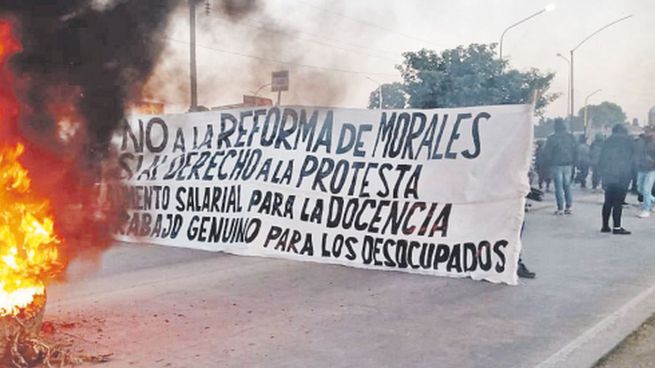 NO A LA REFORMA DE MORALES
SI AL DERECHO A LA PROTESTA
MENTO SALARIAL PARA LA DOCENCIA
RABAJO GENUINO PARA LOS DESOCUPADOS